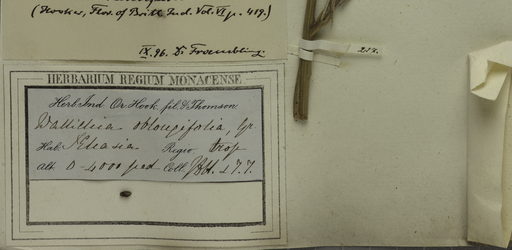 (Hooker, Flor. of Brith. Ind. Vol. VI p. 419.)
IX. 96. Dr Froembling.
217.
HERBARIUM REGIUM MONACENSE
Herb. Ind. Or. Hook. fil. & Thomson
Wallichia oblongifolia, Gr.
Hab. Khasia Regio trop.
Alt. 0-4000 ped. Coll.